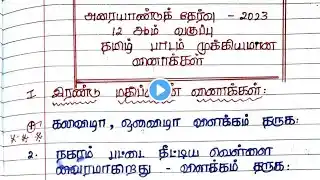 அரையாண்டுத் தேர்வு - 2023
12 ஆம் வகுப்பு
தமிழ் பாடம் முக்கியமான
வினாக்கள்
I இரண்டு வினாக்கள்:
தருக:
2. நகரம் பட்டை தீட்டிய வெள்ளை
வைரமாகிறது - விளக்கம் தருக: